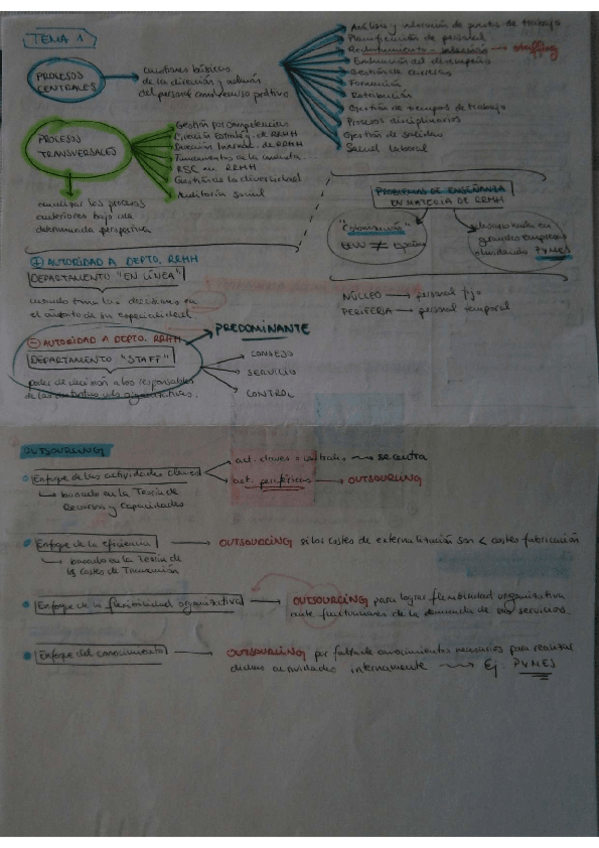 TEMA 1
PROCESOS
CENTRALES
cuestiones básicas
de la dirección y
del personal
Análisis y valoración de puestos de trabajo
Planificación de personal
Reclutamiento - selección → staffing
Evaluación del desempeño
Gestión de carreras
Formación
Retribución
Gestión de tiempos de trabajo
Procesos disciplinarios
Gestión de salidas
Salud laboral
PROCESOS
TRANSVERSALES
Gestión por competencias
Dirección Estratég. de RRHH
Dirección Internac. de RRHH
RSC en RRHH
Gestión de la diversidad
Auditoría social
analizar los procesos
anteriores bajo una
determinada perspectiva
PROBLEMAS DE ENSEÑANZA
EN MATERIA DE RRHH
"Colonización"
EEUU ≠ España
grandes empresas
olvidando PYMES
NÚCLEO → personal fijo
PERIFERIA → personal temporal
+ AUTORIDAD A DEPTO. RRHH
DEPARTAMENTO "EN LÍNEA"
decisiones en
el ámbito de su especialidad
- AUTORIDAD A DEPTO. RRHH
DEPARTAMENTO "STAFF"
poder de decisión a los responsables
de las uds organizativas.
PREDOMINANTE
CONSEJO
SERVICIO
CONTROL
OUTSOURCING
Enfoque de las actividades claves
basado en la Teoría de
Recursos y Capacidades
act. claves o centrales → se centra
act. periféricas → OUTSOURCING
Enfoque de la eficiencia → OUTSOURCING si los costes de externalización son < costes fabricación
basado en la Teoría de
los costes de Transacción
Enfoque de la flexibilidad organizativa → OUTSOURCING para lograr flexibilidad organizativa
ante fluctuaciones de la demanda de sus servicios.
Enfoque del conocimiento → OUTSOURCING por falta de conocimientos necesarios para realizar
dichas actividades internamente → Ej. PYMES